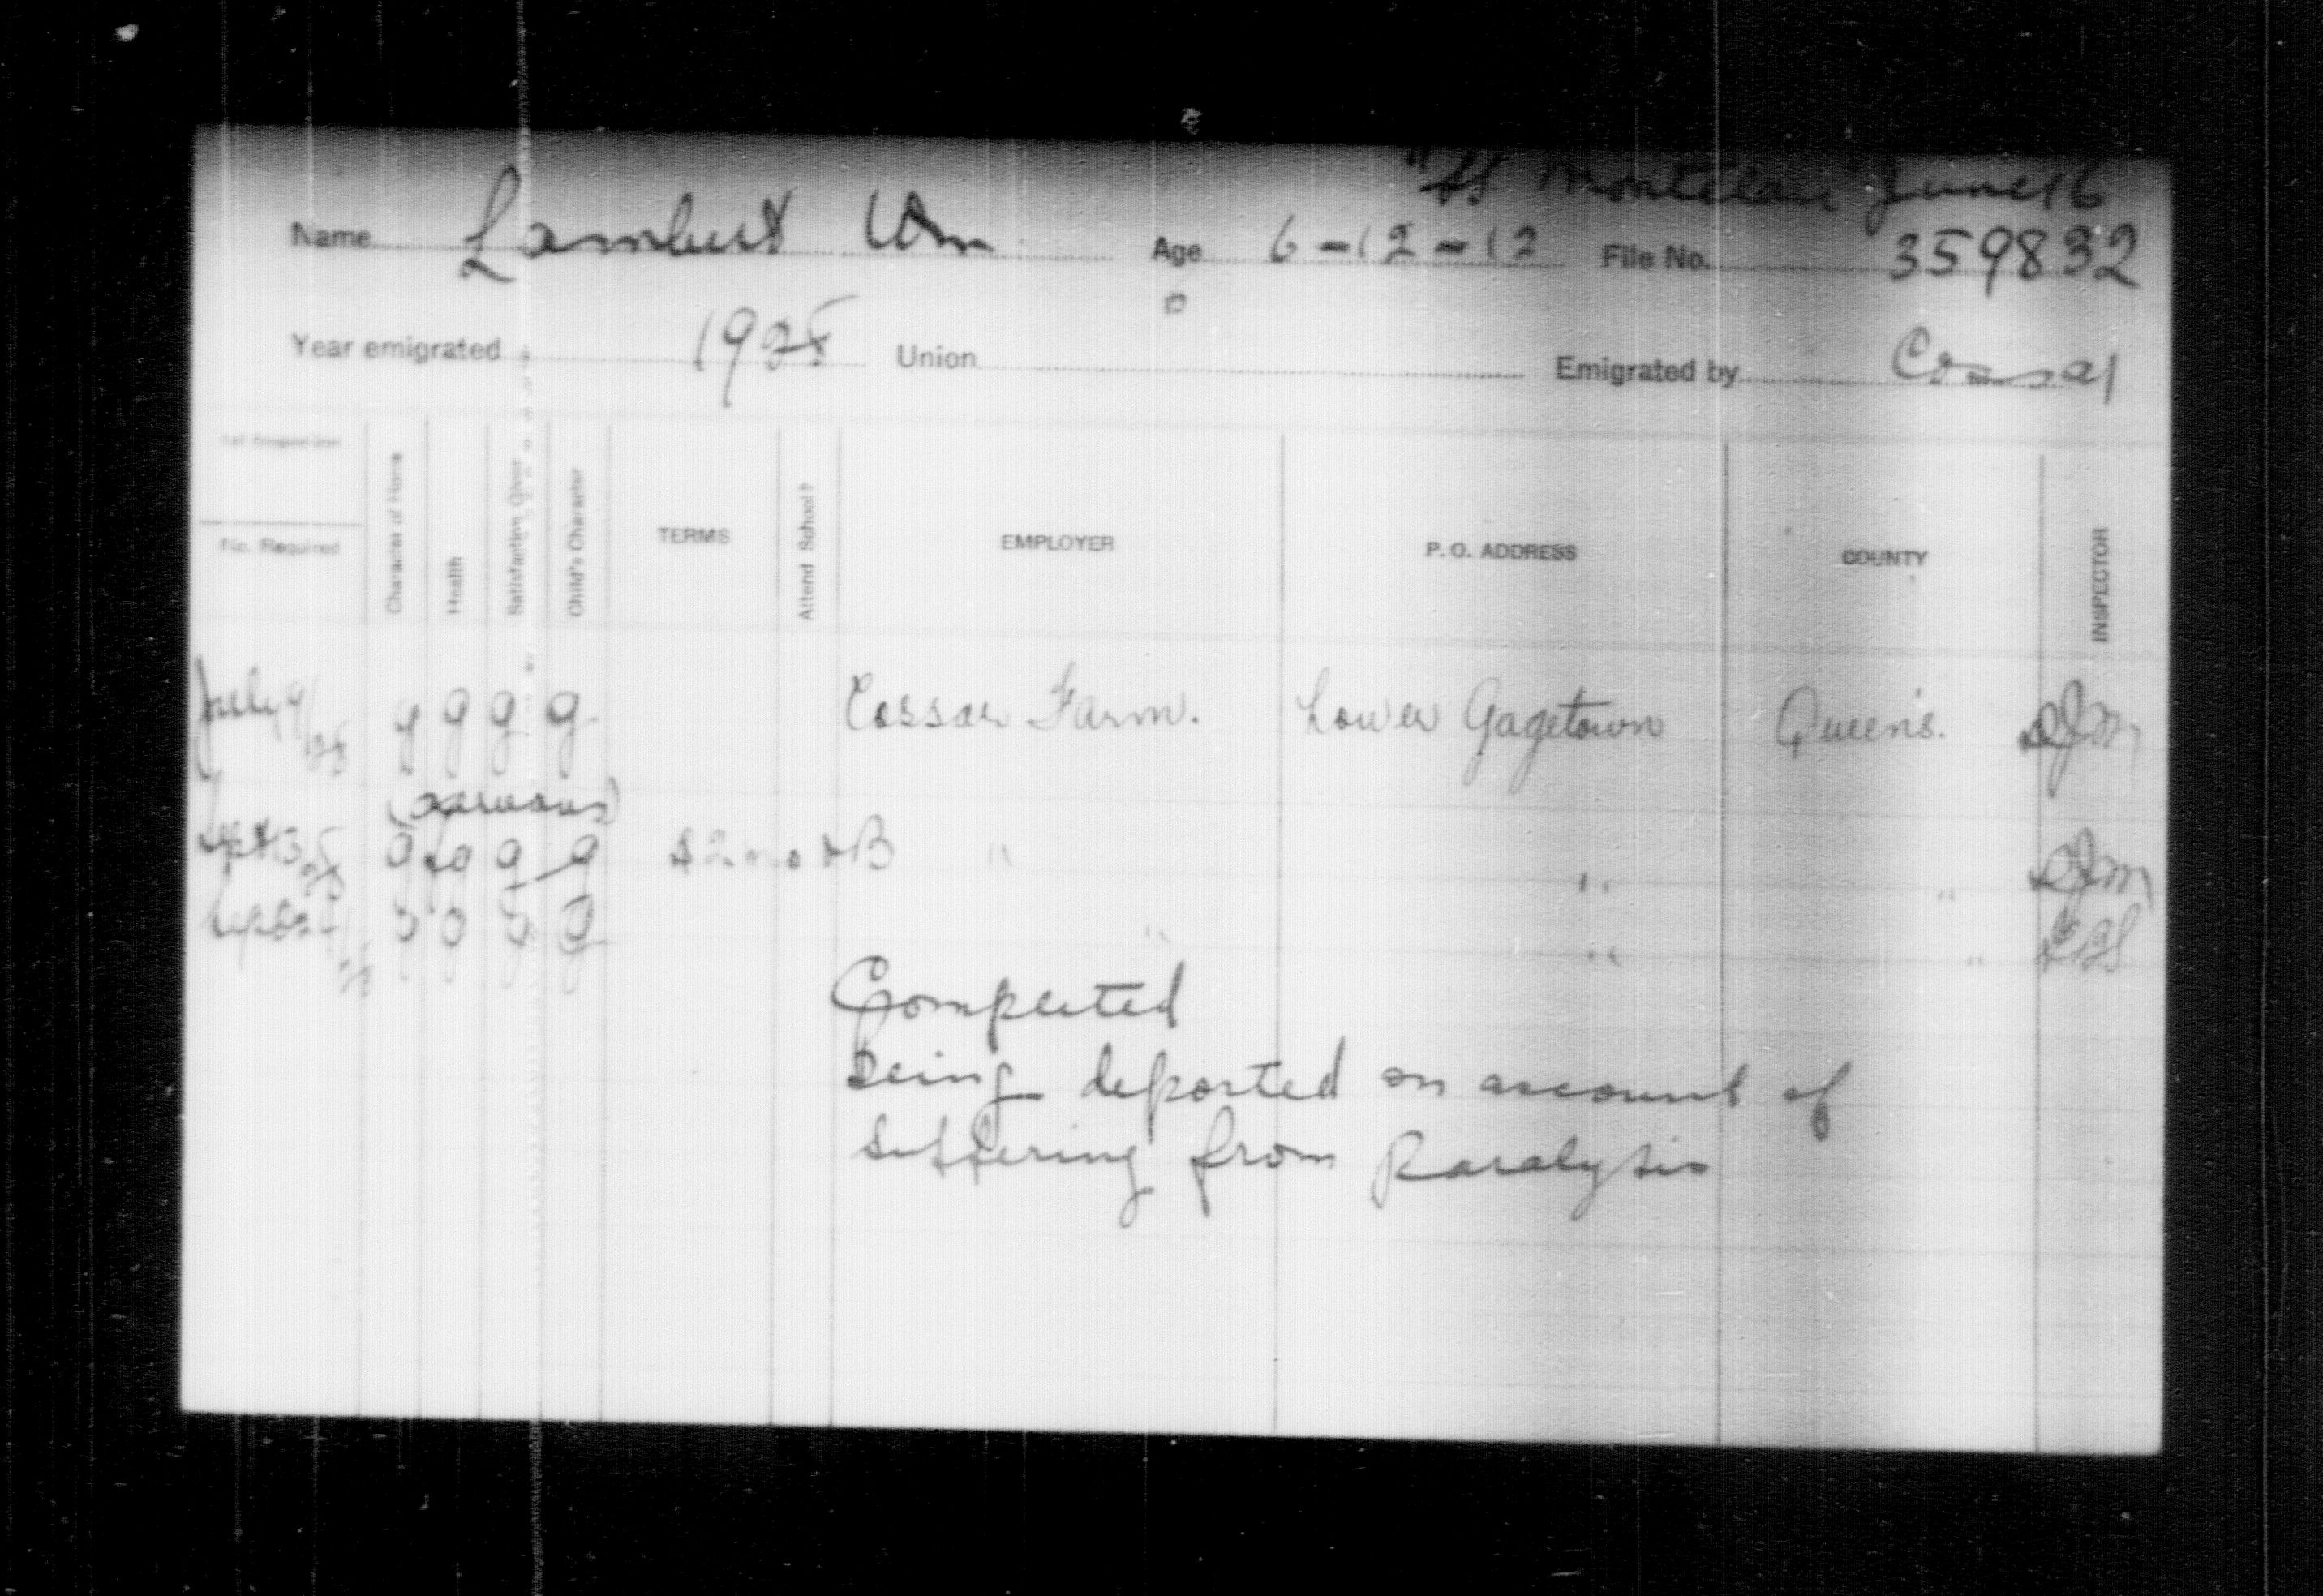 "SS Montclare" June 16
Name Lambert Wm Age 6-12-12 File No. 359832
Year emigrated 1928 Union Emigrated by Cossar
1st Inspection
No. Required
Character of Home
Health
Satisfaction Given
Child's Character
TERMS
Attend School?
EMPLOYER
P. O. ADDRESS
COUNTY
INSPECTOR
July 9/28 g g g g Cossar Farm. Lower Gagetown Queen's. DJM
(nervous)
Sept 3 g g g g " " " DJM
g g g g " " "
Completed
Being deported on account of
suffering from Paralysis